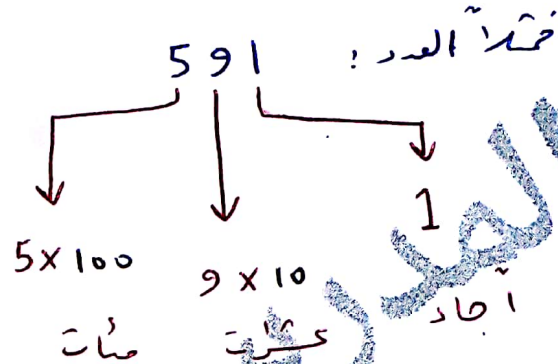 فمثلاً العدد :
591
5 × 100 9 × 10 1
مئات عشرات آحاد